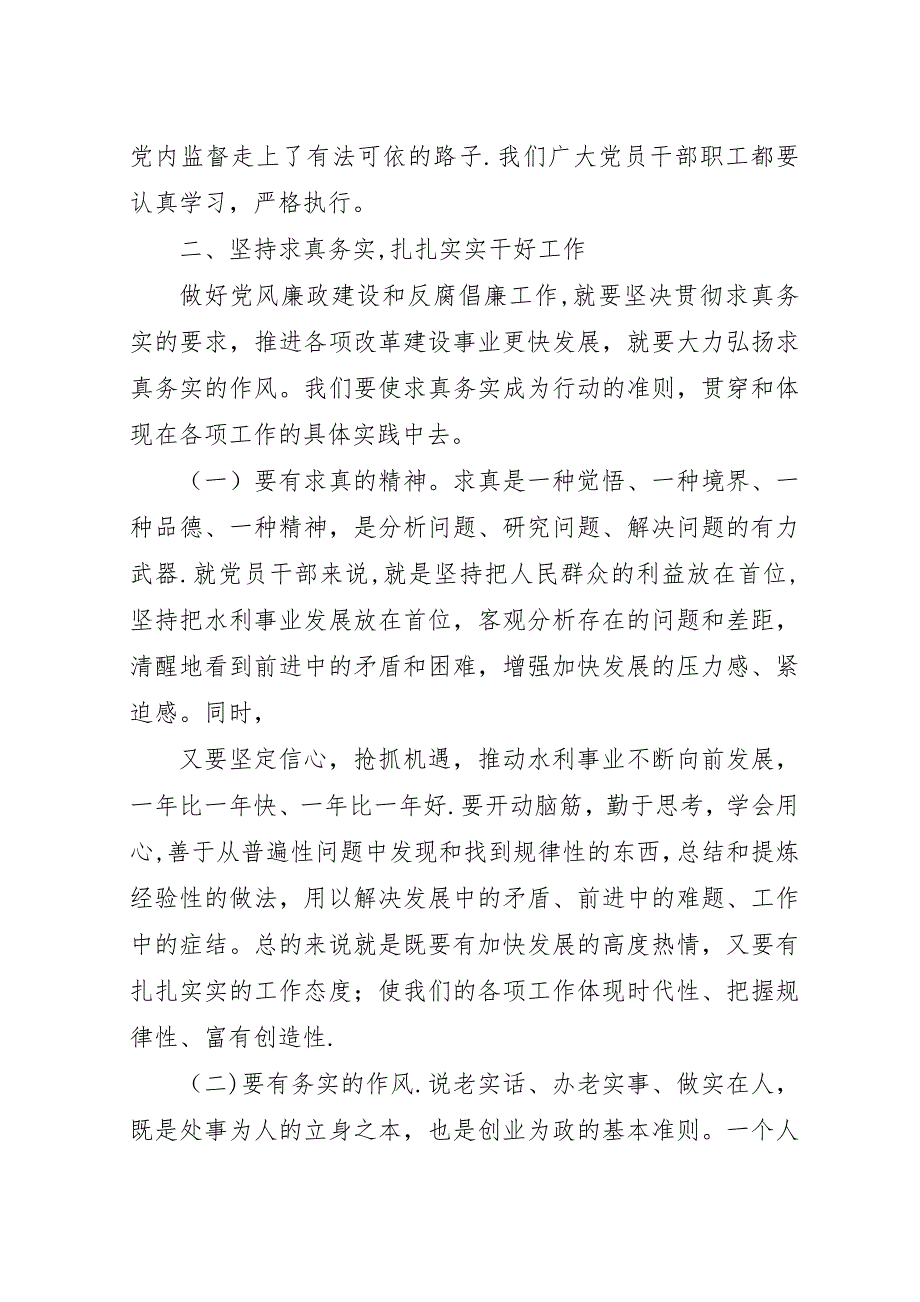 党内监督走上了有法可依的路子.我们广大党员干部职工都要
认真学习，严格执行。
二、坚持求真务实,扎扎实实干好工作
做好党风廉政建设和反腐倡廉工作,就要坚决贯彻求真务
实的要求，推进各项改革建设事业更快发展，就要大力弘扬求
真务实的作风。我们要使求真务实成为行动的准则，贯穿和体
现在各项工作的具体实践中去。
（一）要有求真的精神。求真是一种觉悟、一种境界、一
种品德、一种精神，是分析问题、研究问题、解决问题的有力
武器.就党员干部来说,就是坚持把人民群众的利益放在首位,
坚持把水利事业发展放在首位，客观分析存在的问题和差距，
清醒地看到前进中的矛盾和困难，增强加快发展的压力感、紧
迫感。同时，
又要坚定信心，抢抓机遇，推动水利事业不断向前发展，
一年比一年快、一年比一年好.要开动脑筋，勤于思考，学会用
心,善于从普遍性问题中发现和找到规律性的东西,总结和提炼
经验性的做法，用以解决发展中的矛盾、前进中的难题、工作
中的症结。总的来说就是既要有加快发展的高度热情，又要有
扎扎实实的工作态度；使我们的各项工作体现时代性、把握规
律性、富有创造性.
（二)要有务实的作风.说老实话、办老实事、做实在人，
既是处事为人的立身之本，也是创业为政的基本准则。一个人